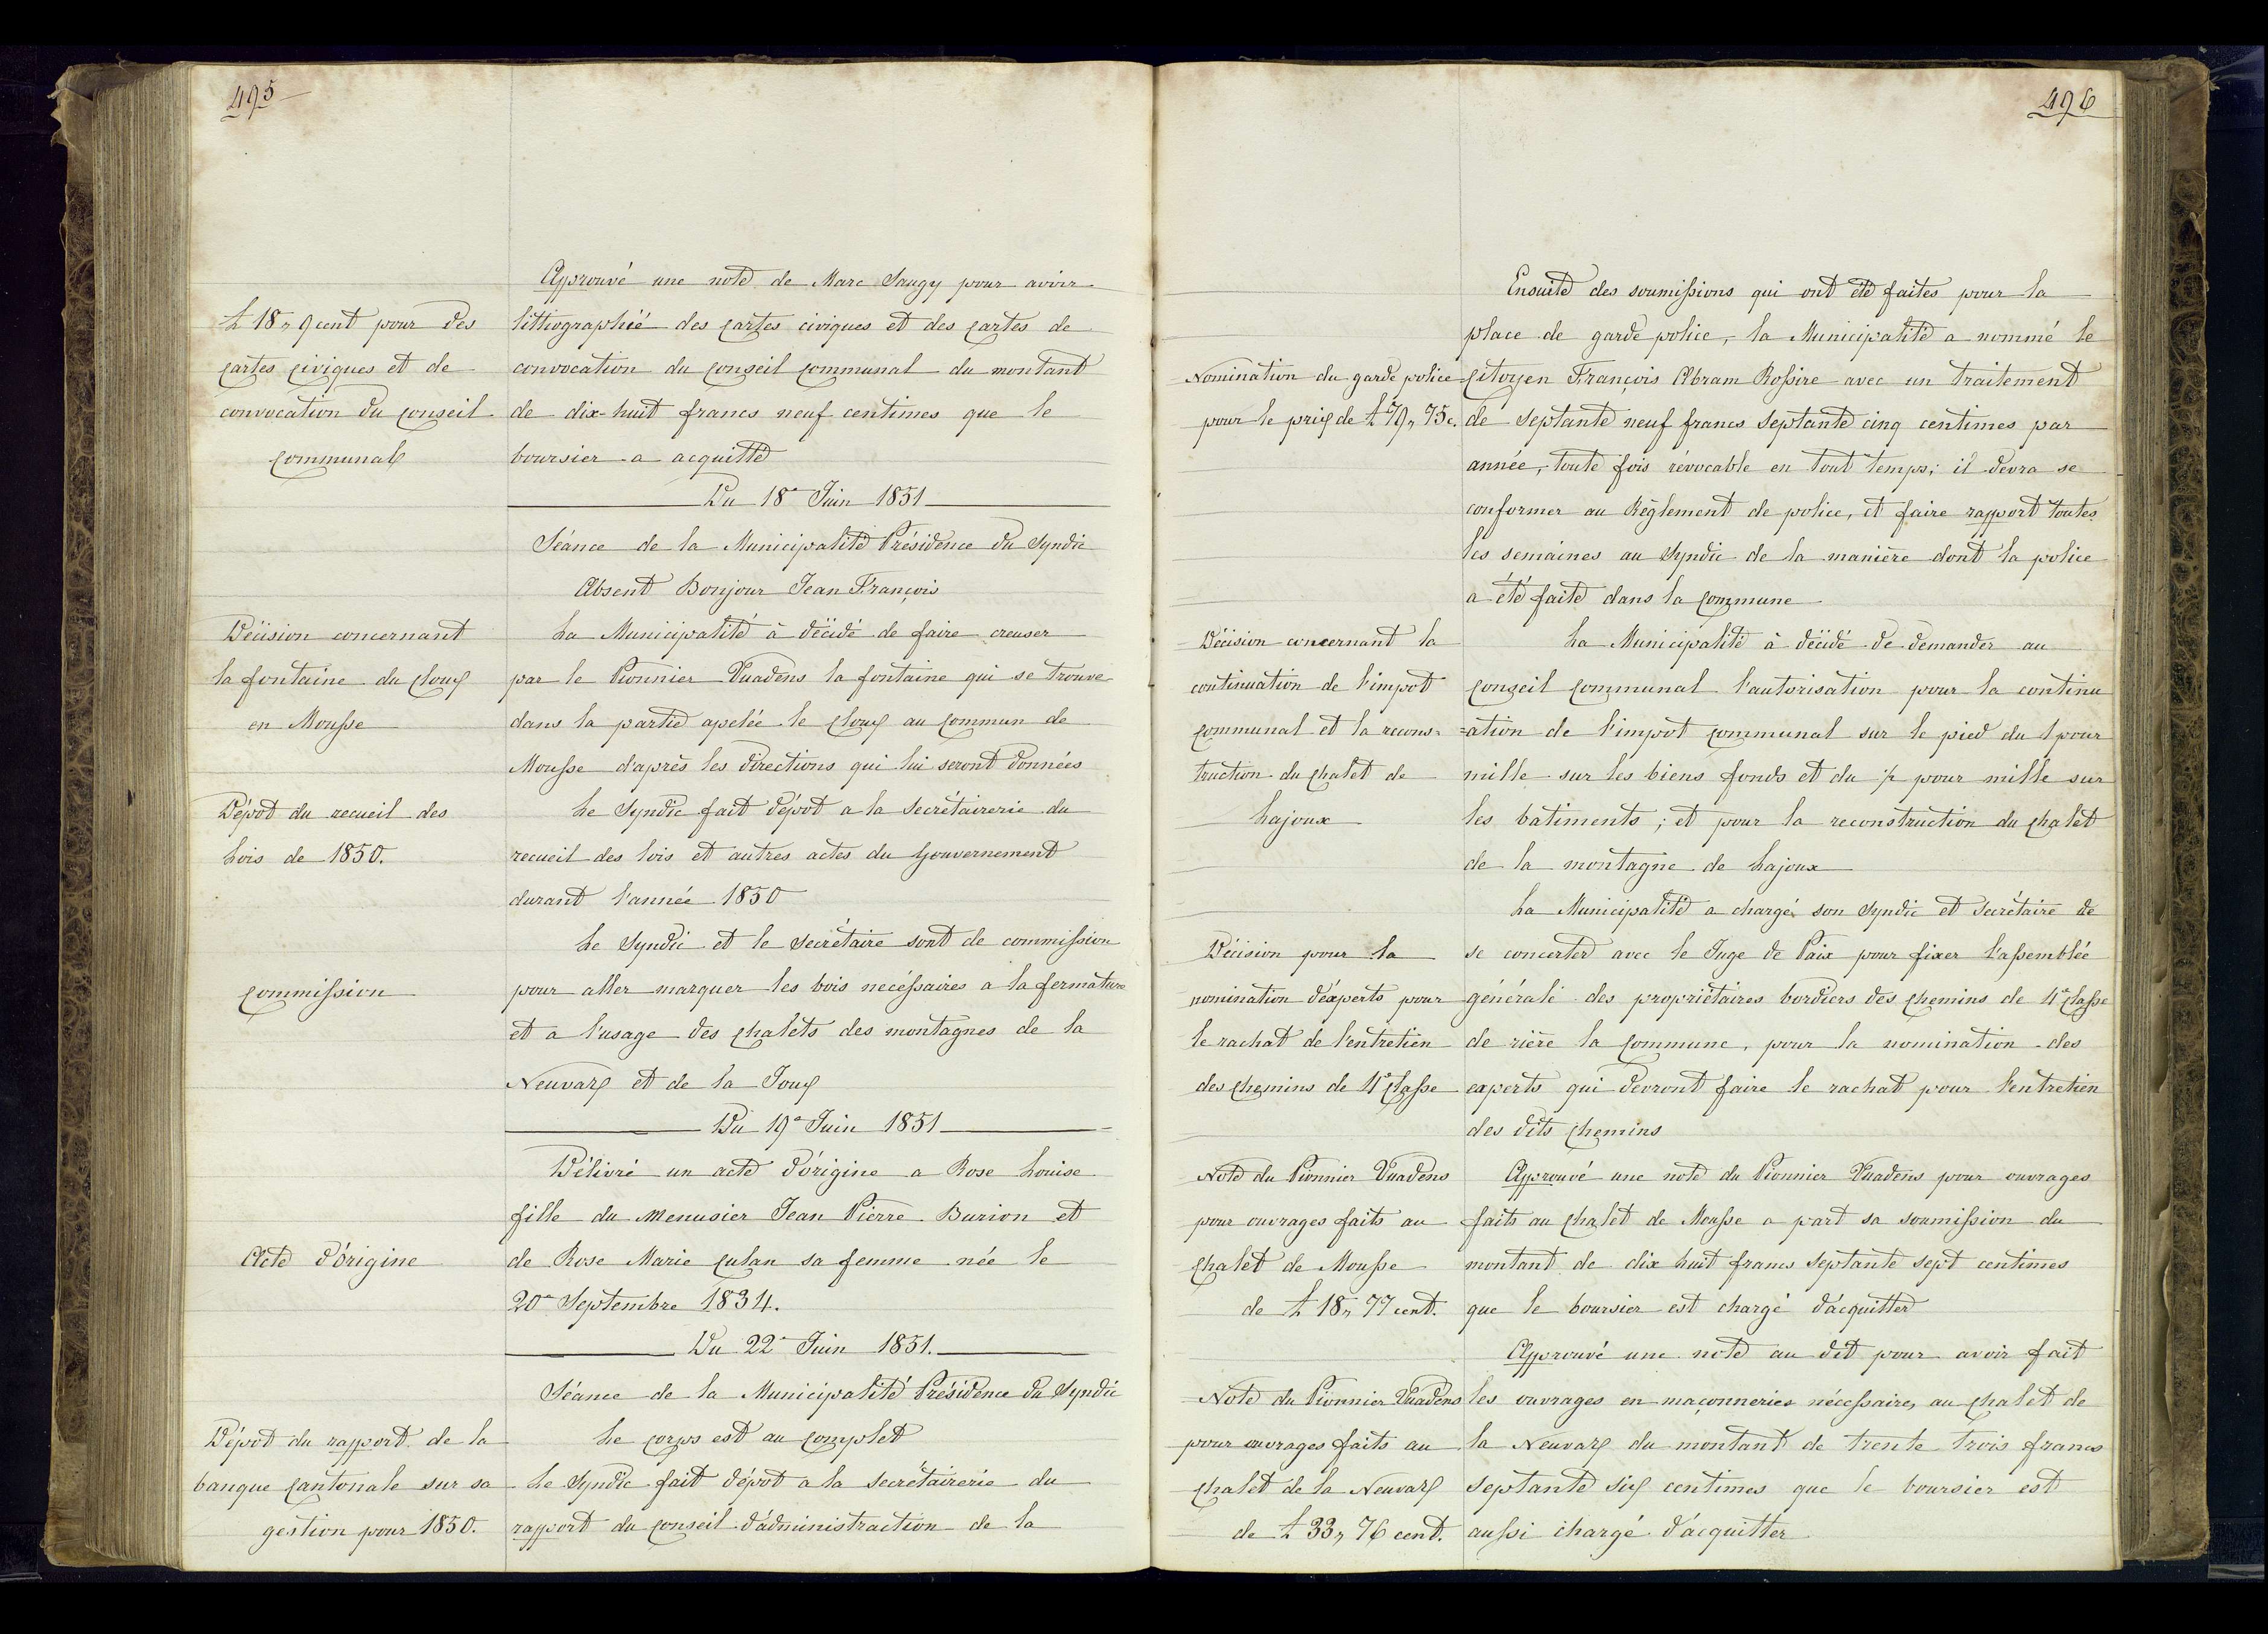 495
Approuvé une note de Marc Saugy pour avoir
L 18„ 9 cent pour des
cartes civiques et de
convocation du conseil
communal
littiographié des cartes civiques et des cartes de
convocation du conseil communal du montant
de dix-huit francs neuf centimes que le
boursier a acquitté
Du 18e Juin 1851
Séance de la Municipalité Présidence du Syndic
Absent Bonjour Jean François
Décision concernant
la fontaine du Cloux
en Mousse
La Municipalité à décidé de faire creuser
par le Pionnier Vuadens la fontaine qui se trouve
dans la partie apelée le Cloux au commun de
Mousse d'après les directions qui lui seront données
Dépot du recueil des
Lois de 1850.
Le Syndic fait dépot a la Secrétairerie du
recueil des lois et autres actes du Gouvernement
durant l'année 1850
Commission
Le Syndic et le Secrétaire sont de commission
pour aller marquer les bois necéssaires a la fermature
et a l'usage des chalets des montagnes de la
Neuvaz et de la Joux
Du 19e Juin 1851
Délivré un acte d'origine a Rose Louise
fille du Menusier Jean Pierre Burion et
Acte d'Origine
de Rose Marie Culan sa femme née le
20e Septembre 1834.
Du 22e Juin 1851.
Séance de la Municipalité Présidence du Syndic
Le corps est au complet
Dépot du rapport de la
banque cantonale sur sa
gestion pour 1850.
Le Syndic fait dépot a la secrétairerie du
rapport du conseil d'administraction de la
496
Ensuite des soumissions qui ont été faites pour la
place de garde police, la Municipalité a nommé le
Nomination du garde police
pour le prix de L 79„ 75 c.
citoyen François Abram Rossire avec un traitement
de septante neuf francs septante cinq centimes par
année, toute fois révocable en tout temps; il devra se
conformer au Règlement de police, et faire rapport toutes
les semaines au Syndic de la manière dont la police
a été faite dans la commune
Décision concernant la
continuation de l'impot
communal et la recons-
truction du chalet de
Lajoux
La Municipalité à décidé de demander au
conseil communal l'autorisation pour la continu
=ation de l'impot communal sur le pied du 1 pour
mille sur les biens fonds et du ½ pour mille sur
les batiments; et pour la reconstruction du chalet
de la montagne de Lajoux
La Municipalité a chargé son Syndic et Secrétaire de
Décision pour la
nomination d'éxperts pour
le rachat de l'entretien
des chemins de 4e classe
se concerter avec le Juge de Paix pour fixer l'assemblée
générale des propriétaires bordiers des chemins de 4e classe
de rière la commune, pour la nomination des
experts qui devront faire le rachat pour l'entretien
des dits chemins
Note du Pionnier Vuadens
pour ouvrages faits au
chalet de Mousse
de L 18„ 77 cent.
Approuvé une note du Pionnier Vuadens pour ouvrages
faits au chalet de Mousse a part sa soumission du
montant de dix huit francs septante sept centimes
que le boursier est chargé d'acquitter
Approuvé une note au dit pour avoir fait
Note du Pionnier Vuadens
pour ouvrages faits au
chalet de la Neuvaz
de L 33„ 76 cent.
les ouvrages en maçonneries nécessaires au chalet de
la Neuvaz du montant de trente trois francs
septante six centimes que le boursier est
aussi chargé d'acquitter